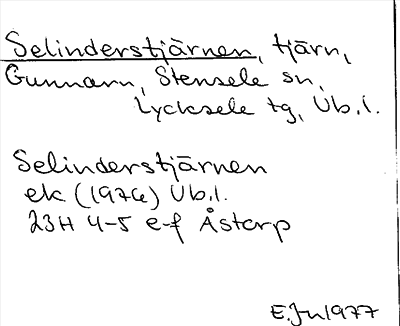 Selinderstjärnen, tjärn,
Gunnarn, Stensele sn,
Lycksele tg, Vb.l.
Selinderstjärnen
ek (1974) Vb.l.
23H 4-5 e-f Åstorp
E.Jn 1977